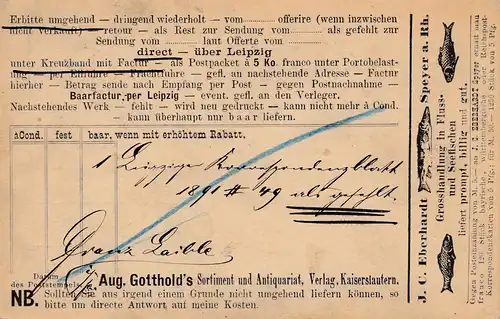 Erbitte umgehend — dringend wiederholt — vom.............. offerire (wenn inzwischen
nicht verkauft) — retour — als Rest zur Sendung vom.............. als gefehlt zur
Sendung vom.............. laut Offerte vom..............
direct — über Leipzig
unter Kreuzband mit Factur — als Postpacket à 5 Ko. franco unter Portobelast-
ung — per Eilfuhre — Frachtfuhre — gefl. an nachstehende Adresse — Factur
hierher — Betrag sende nach Empfang per Post — gegen Postnachnahme
Baarfactur per Leipzig — event. gefl. an den Verleger.
Nachstehendes Werk — fehlt — wird neu gedruckt — kann nicht mehr à Cond.
kann überhaupt nur baar liefern.
àCond. fest baar, wenn mit erhöhtem Rabatt.
1 Leipziger Korrespondenzblatt
1891 # 49 als gefehlt.
Franz Laible
Datum
des Poststempels.
Aug. Gotthold's Sortiment und Antiquariat, Verlag, Kaiserslautern.
NB. Sollten Sie aus irgend einem Grunde nicht umgehend liefern können, so
bitte um directe Antwort auf meine Kosten.
J. C. Eberhardt Speyer a. Rh.
Grosshandlung in Fluss-
und Seefischen
liefert prompt, billig u. gut.